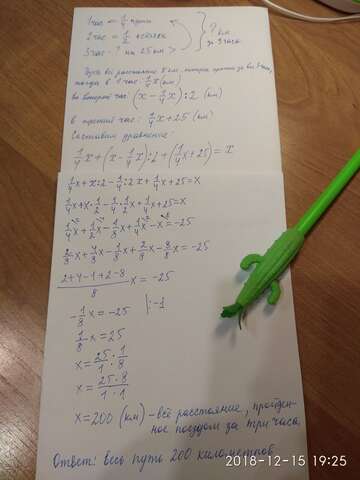 1 час — 1/4 пути
2 час — 1/2 остатка
3 час - ? на 25 км >
? км
за 3 часа
Пусть всё расстояние x км, которое прошёл за все 3 часа,
тогда в 1 час: 1/4 x (км)
во второй час: (x - 1/4 x) : 2 (км)
в третий час: 1/4 x + 25 (км)
Составим уравнение:
1/4 x + (x - 1/4 x) : 2 + (1/4 x + 25) = x
1/4 x + x : 2 - 1/4 : 2 x + 1/4 x + 25 = x
1/4 x + x · 1/2 - 1/4 · 1/2 x + 1/4 x + 25 = x
1/4 x + 1/2 x - 1/8 x + 1/4 x - x = -25
2/8 x + 4/8 x - 1/8 x + 2/8 x - 8/8 x = -25
(2+4-1+2-8)/8 x = -25
-1/8 x = -25 | : -1
1/8 x = 25
x = 25/1 : 1/8
x = 25 · 8/1 · 1
x = 200 (км) - всё расстояние, пройден-
ное поездом за три часа.
Ответ: весь путь 200 километров
2018-12-15 19:25